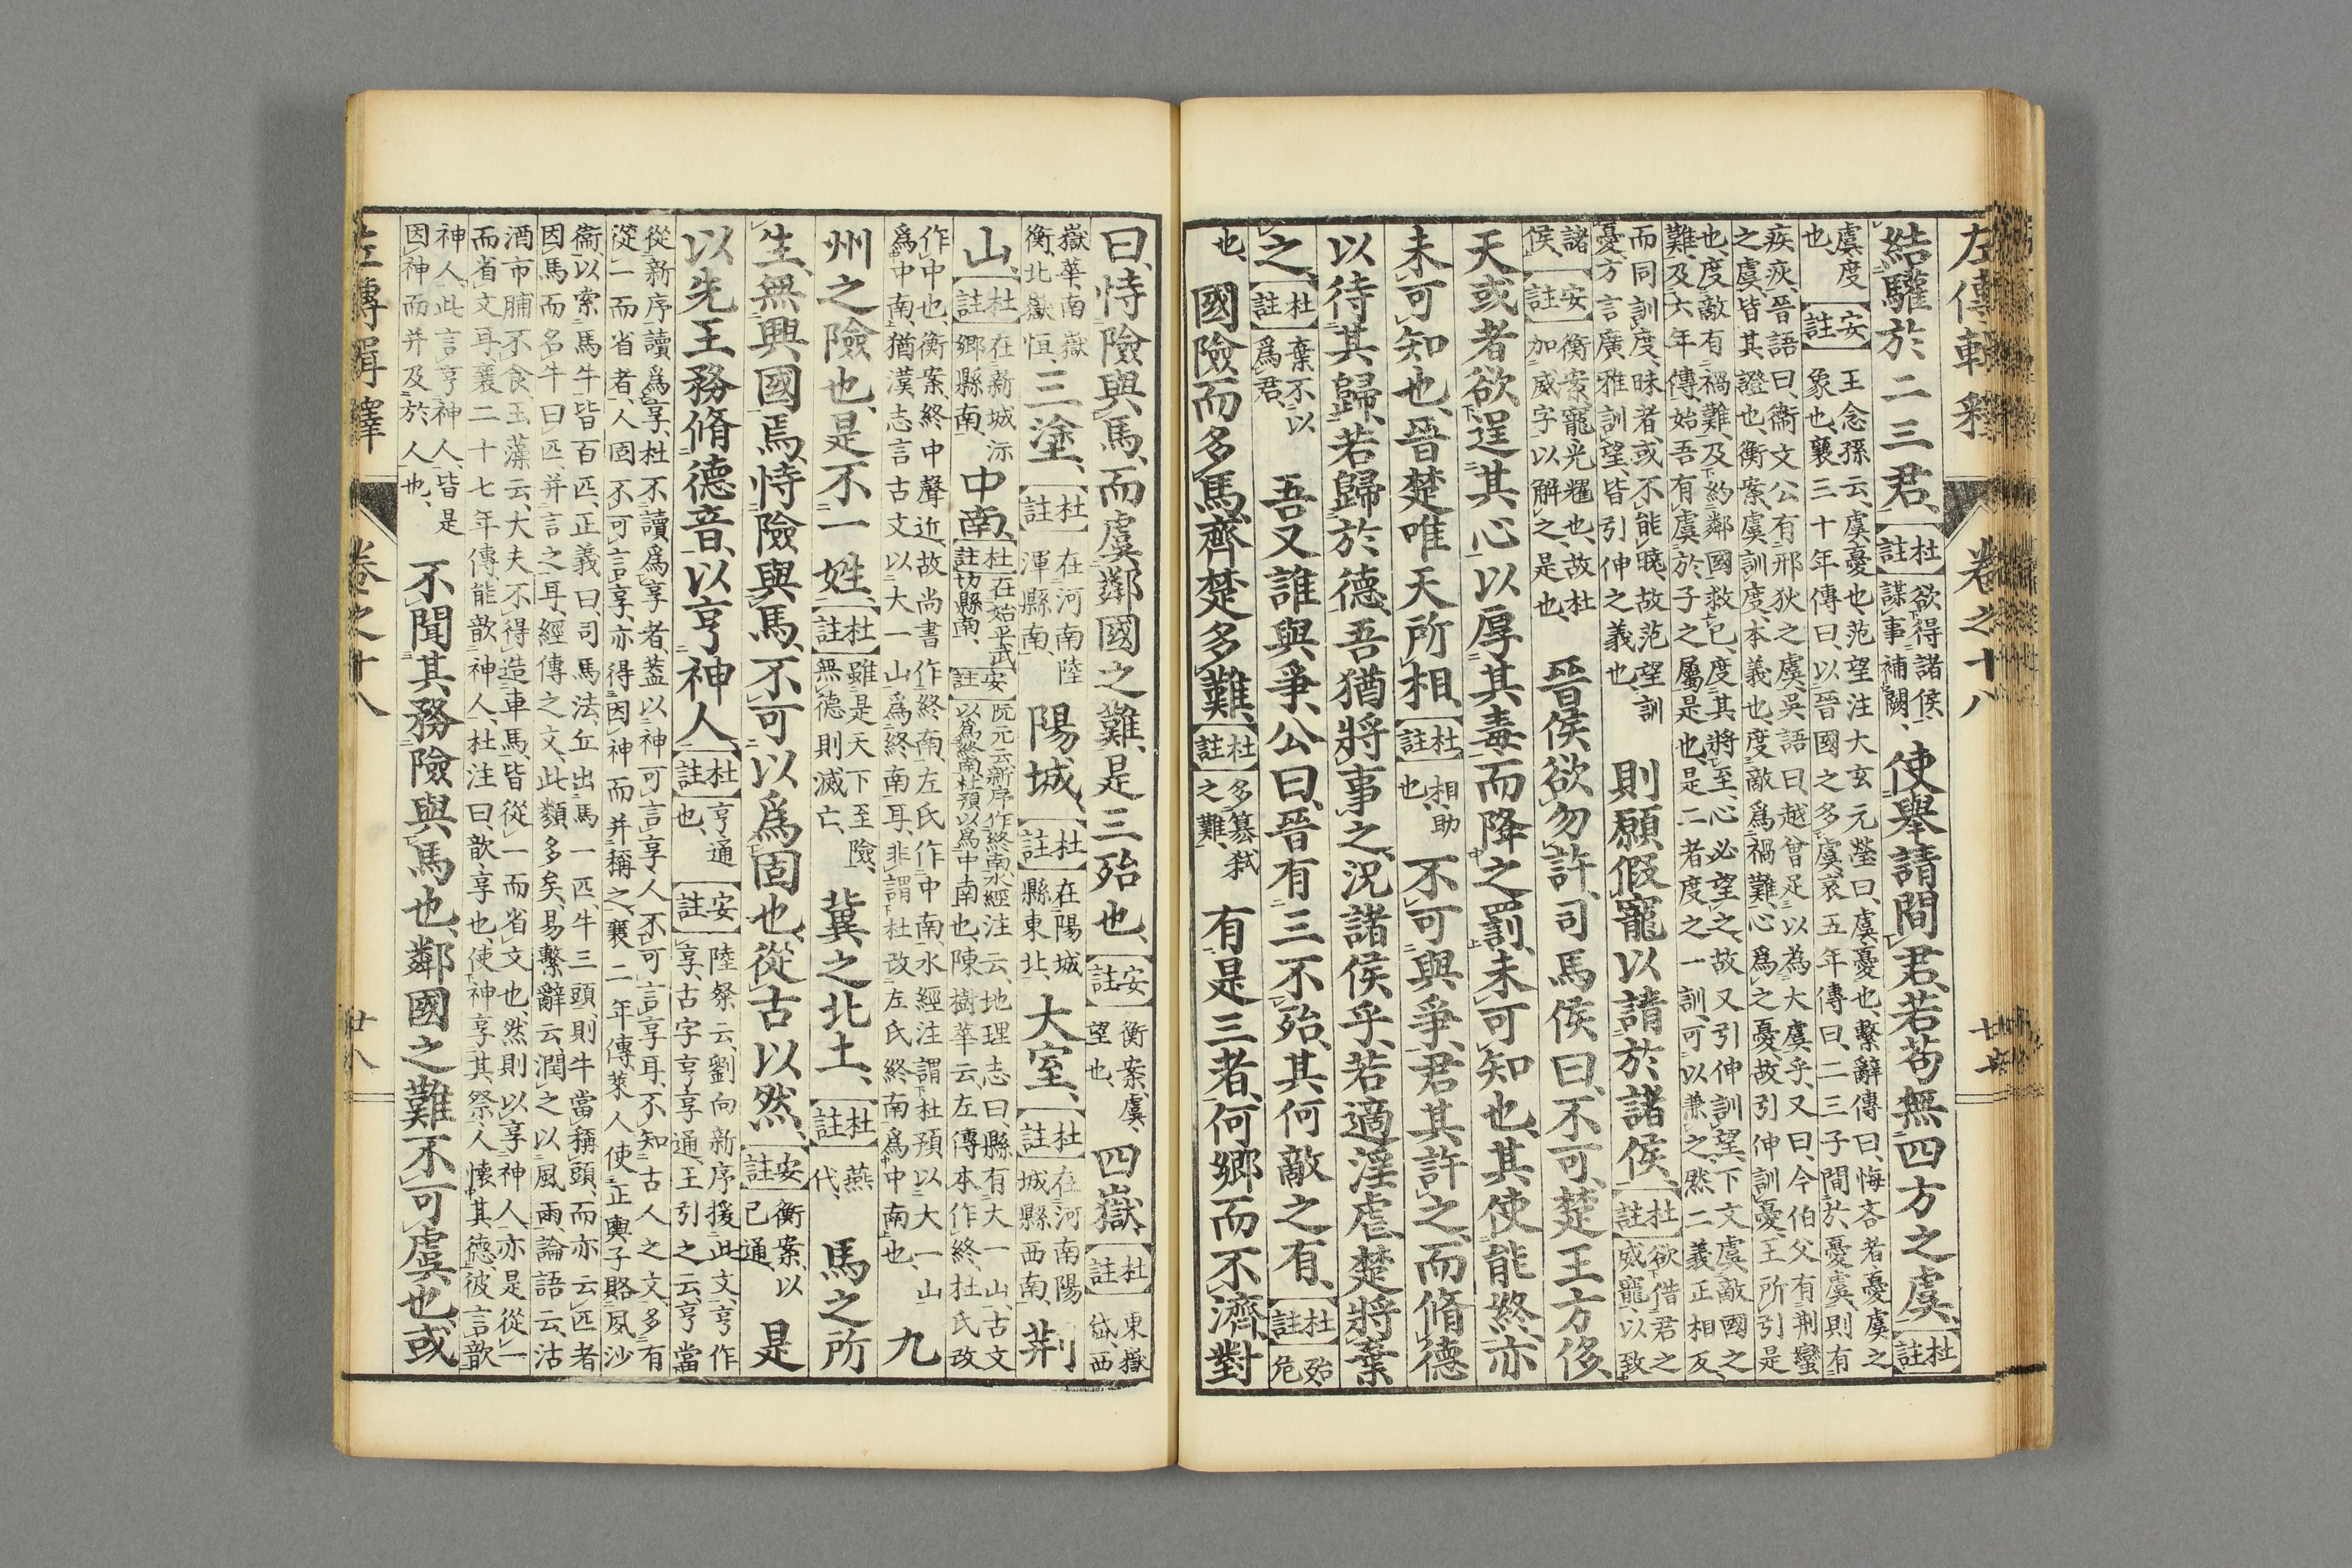 左傳輯釋 卷之十八
結驩於二三君、杜註欲得諸侯、謀事補闕、使舉請間、君若苟無四方之虞、杜註
虞度也、安註王念孫云、虞憂也、范望注大玄元瑩曰、虞憂也、繫辭傳曰、悔吝者憂虞之象也、襄三十年傳曰、以晉國之多虞、哀五年傳曰、二三子間於憂虞、則有
疾疢、晉語曰、衞文公有邢狄之虞、吳語曰、越曾足以為大虞乎、又曰、今伯父有荆蠻之虞、皆其證也、衡案、虞訓度、本義也、度敵爲禍難、心爲之憂、故引伸訓憂、王所引是
也、度敵有禍難、及約鄰國救已、度其將至、心必望之、故又引伸訓望、下文虞敵國之難、及六年傳、始吾有虞於子之屬是也、是二者度之一訓、可以兼之、然二義正相反
而同訓度、昧者或不能曉、故范望訓憂、方言廣雅訓望、皆引伸之義也、則願假寵以請於諸侯、杜註欲借君之威寵、以致
諸侯、安註衡案、寵光耀也、故杜加威字以解之、是也、晉侯欲勿許、司馬侯曰、不可、楚王方侈、
天或者欲逞其心、以厚其毒、而降之罰、未可知也、其使能終、亦
未可知也、晉楚唯天所相、杜註相助也、不可與爭、君其許之、而脩德
以待其歸、若歸於德、吾猶將事之、況諸侯乎、若適淫虐、楚將棄
之、杜註棄不以爲君、吾又誰與爭、公曰、晉有三不殆、其何敵之有、杜註殆危
也、國險而多馬、齊楚多難、杜註多篡弒之難、有是三者、何鄉而不濟、對
曰、恃險與馬、而虞鄰國之難、是三殆也、安註衡案、虞、望也、四嶽、杜註東嶽岱、西
嶽華、南嶽衡、北嶽恒三塗、杜註在河南陸渾縣南陽城、杜註在陽城縣東北、大室、杜註在河南陽城縣西南、荆
山、杜註在新城沶鄉縣南、中南、杜註在始平武功縣南、安註阮元云、新序作終南、水經注云、地理志曰、縣有大一山、古文以爲終南、杜預以爲中南也、陳樹華云、左傳本作終、杜氏改
作中也、衡案、終中聲近、故尚書作終南、左氏作中南、水經注謂杜預以大一山爲中南、猶漢志言古文以大一山爲終南耳、非謂杜改左氏終南爲中南也、九
州之險也、是不一姓、杜註雖是天下至險、無德則滅亡、冀之北土、杜註燕代、馬之所
生、無興國焉、恃險與馬、不可以爲固也、從古以然、安註衡案、以已通、是
以先王務脩德音、以亨神人、杜註亨通也、安註陸粲云、劉向新序援此文、亨作享、古字亨享通、王引之云、亨當
從新序讀爲享、杜不讀爲享者、蓋以神可言享、人不可言享耳、不知古人之文、多有從一而省者、人固不可言享、亦得因神而并稱之、襄二年傳、萊人使正輿子賂夙沙
衞以索馬牛皆百匹、正義曰、司馬法、丘出馬一匹、牛三頭、則牛當稱頭、而亦云匹者、因馬而名牛曰匹、并言之耳、經傳之文、此類多矣、易繫辭云、潤之以風雨、論語云、沽
酒市脯不食、玉藻云、大夫不得造車馬、皆從一而省文也、然則以享神人、亦是從一而省文耳、襄二十七年傳、能歆神人、杜注曰、歆、享也、使神享其祭、人懷其德、彼言歆
神人、此言亨神人、皆是因神而并及於人也、不聞其務險與馬也、鄰國之難、不可虞也、或
左傳輯釋 卷之十八 廿八